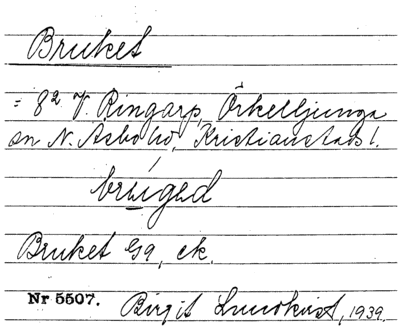 Bruket
= 8² V. Ringarp, Örkelljunga
sn N. Åsbo hd, Kristianstads l.
brúged
Bruket Ga, ek.
Nr 5507. Birgit Lundkvist, 1939.